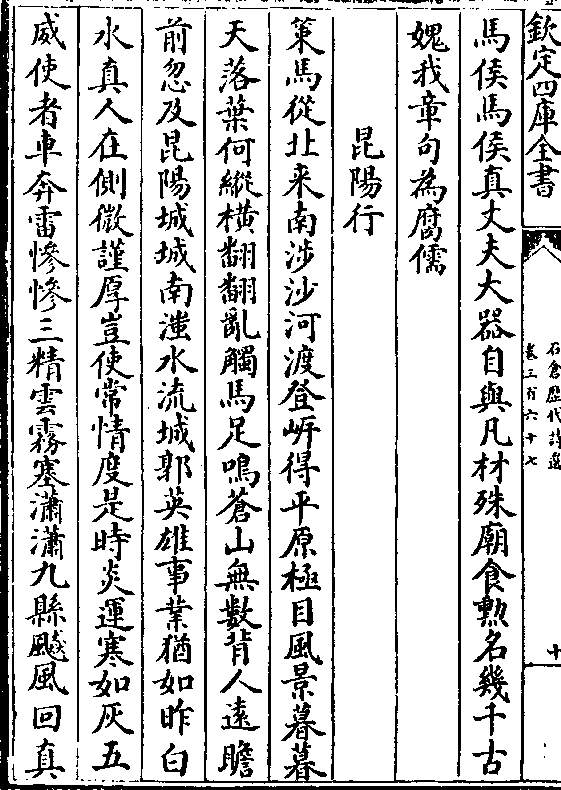 欽定四庫全書
石倉歷代詩選
卷三百六十七
十
馬侯馬侯真丈夫大器自與凡材殊廟食勲名幾千古
媿我章句為腐儒
昆陽行
策馬從北来南涉沙河渡登㟁得平原極目風景暮暮
天落葉何縱横翻翻亂觸馬足鳴蒼山無數背人逺瞻
前忽及昆陽城城南滍水流城郭英雄事業猶如昨白
水真人在側微謹厚豈使常情度是時炎運寒如灰五
威使者車奔雷慘慘三精雲霧塞瀟瀟九縣飈風回真